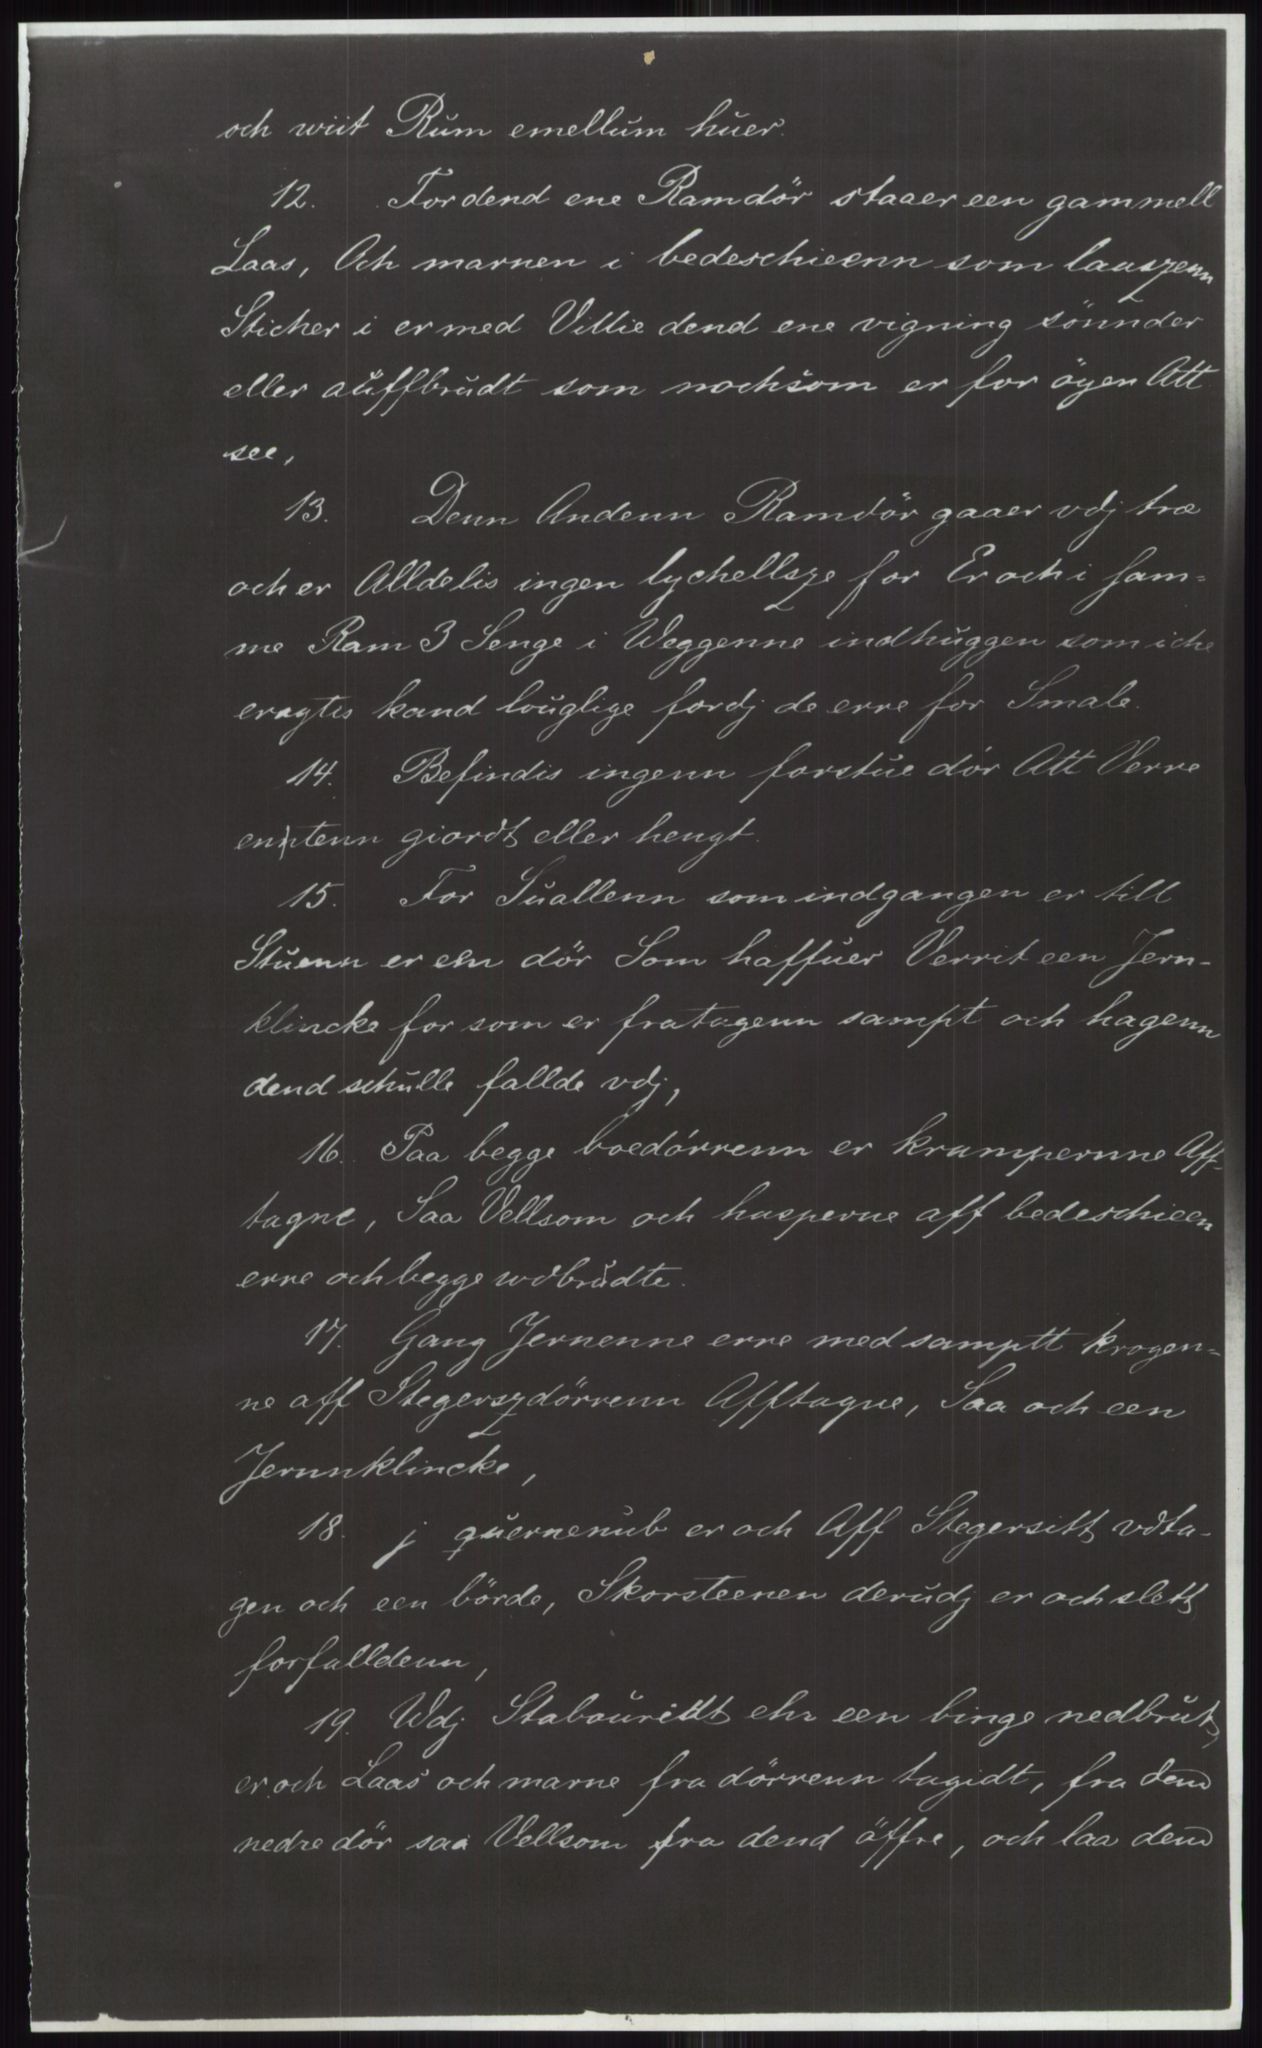 och wiit Rum emellum huer.
12. For dend ene Ramdör staaer een gammell
Laas, Och marnen i bedeschieenn som laaszenn
Sticher i er med Villie dend ene vigning sönnder
eller auffbrudt som nochsom er for öyen Att
see,
13. Denn Andenn Ramdör gaaer vdj træ
och er Alldelis ingen lychellsze for Er och i sam-
me Ram 3 Senge i Weggenne indhuggen som iche
eragtis kand louglige fordj de erre for Smale.
14. Befindis ingenn forstue dör Att Verre
enten giordt eller hengt.
15. For Suallenn som indgangen er till
Stuenn er een dör Som haffuer Verrit een Jern-
klincke for som er fratagenn sampt och hagenn
dend schulle fallde vdj,
16. Paa begge boedörrenn er krampernne Aff-
tagne, Saa Vellsom och hasperne aff bedeschieen
erre och begge wdbrudte.
17. Gang Jernenne erre med samptt krogen-
ne aff Stegerszdörrenn Afftagne, Saa och een
Jernnklincke,
18. j quernenub er och Aff Stegersitt vdta-
gen och een börde, Skorsteenen derudj er och slett
forfalldenn,
19. Wdj Stabouridt ehr een binge nedbrut,
er och Laas och marne fra dörrenn tagidt, fra dend
nedre dör saa Vellsom fra dend öffre, och laa dend